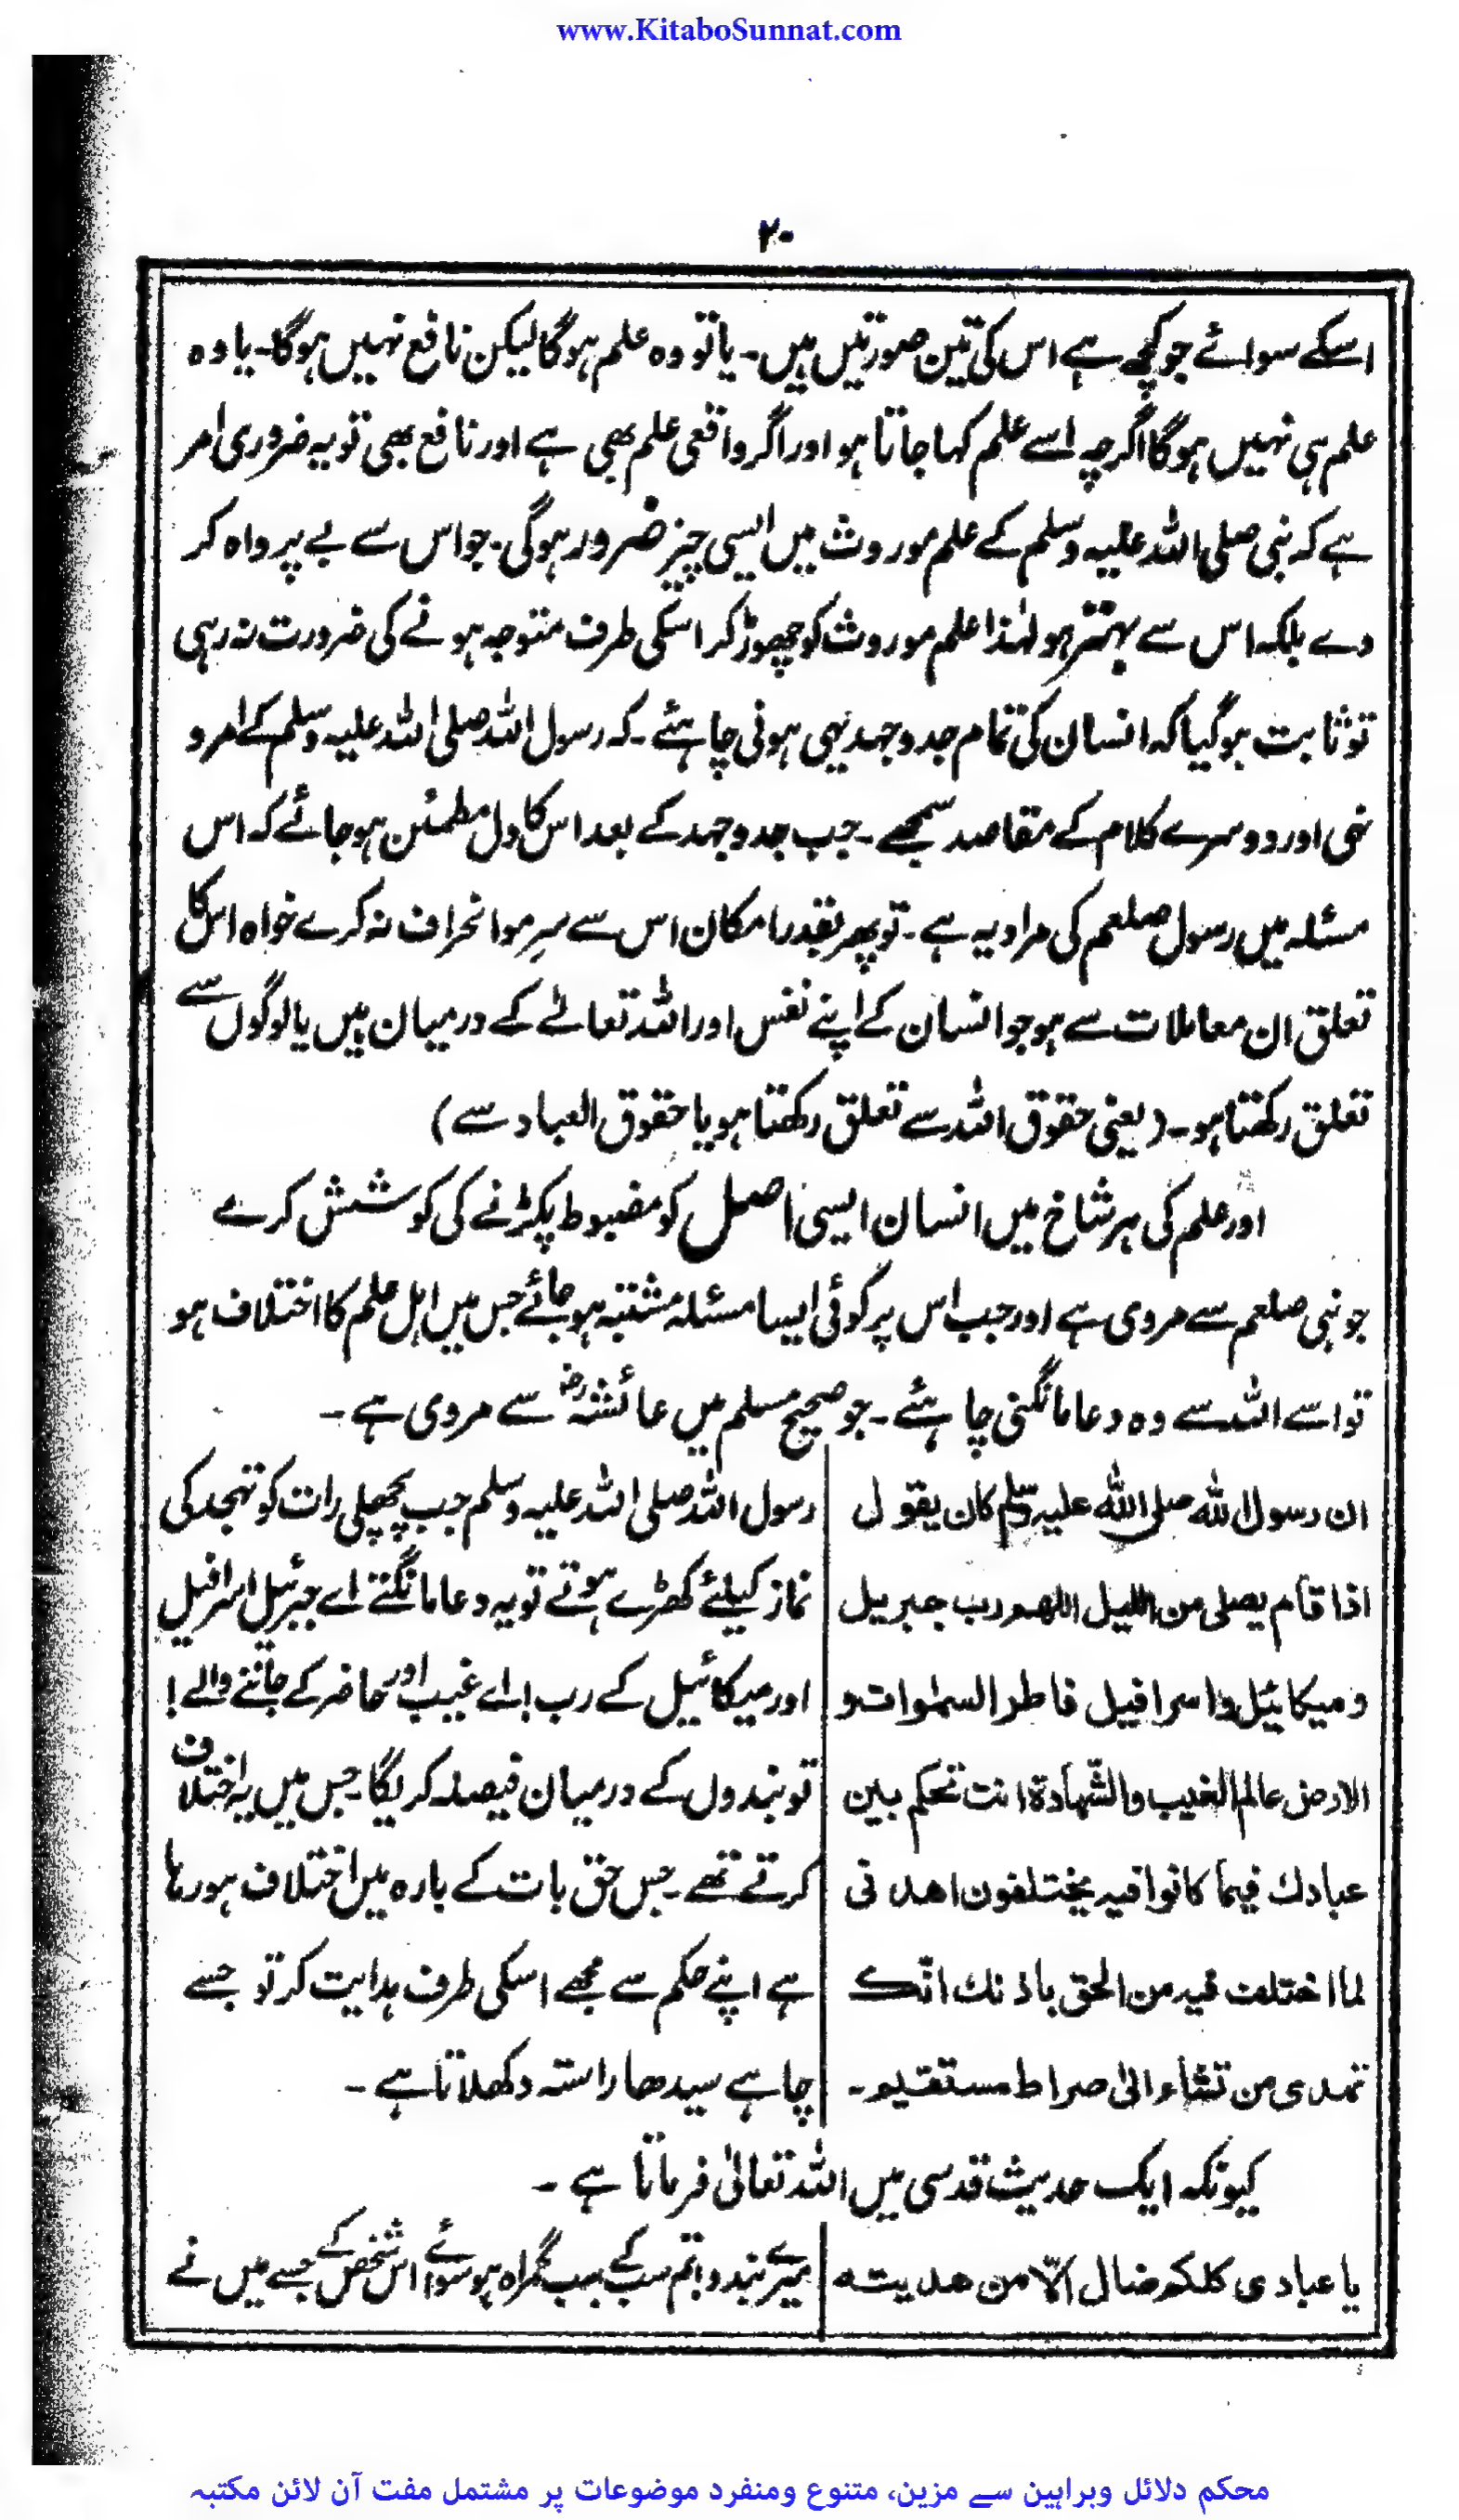 www.KitaboSunnat.com
۲۰
اسکے سوائے جو کچھ ہے اس کی تین صورتیں ہیں۔ یا تو وہ علم ہوگا لیکن نافع نہیں ہوگا۔ یا وہ
علم ہی نہیں ہوگا اگرچہ اسے علم کہا جاتا ہو اور اگر واقعی علم بھی ہے اور نافع بھی تو یہ ضروری امر
ہے کہ نبی صلی اللہ علیہ وسلم کے علم موروث میں ایسی چیز ضرور ہوگی۔ جو اس سے بے پرواہ کر
دے بلکہ اس سے بہتر ہو لہٰذا علم موروث کو چھوڑ کر اسکی طرف متوجہ ہونے کی ضرورت نہ رہی
تو ثابت ہوگیا کہ انسان کی تمام جدوجہد یہی ہونی چاہئے۔ کہ رسول اللہ صلی اللہ علیہ وسلم کے امر و
نہی اور دوسرے کلام کے مقاصد سمجھے۔ جب جدوجہد کے بعد اس کا دل مطمئن ہو جائے کہ اس
مسئلہ میں رسول صلعم کی مراد یہ ہے۔ تو پھر بقدر امکان اس سے سرِمو انحراف نہ کرے خواہ اس کا
تعلق ان معاملات سے ہو جو انسان کے اپنے نفس اور اللہ تعالےٰ کے درمیان ہیں یا لوگوں سے
تعلق رکھتا ہو۔ (یعنی حقوق اللہ سے تعلق رکھتا ہو یا حقوق العباد سے)
اور علم کی ہر شاخ میں انسان ایسی اصل کو مضبوط پکڑنے کی کوشش کرے
جو نبی صلعم سے مروی ہے اور جب اس پر کوئی ایسا مسئلہ مشتبہ ہو جائے جس میں اہل علم کا اختلاف ہو
تو اسے اللہ سے وہ دعا مانگنی چاہئے۔ جو صحیح مسلم میں عائشہؓ سے مروی ہے۔
ان رسول اللہ صلی اللہ علیہ وسلم کان یقول
اذا قام یصلی من اللیل اللھم رب جبریل
و میکائیل و اسرافیل فاطر السمٰوات و
الارض عالم الغیب والشّھادة انت تحکم بین
عبادك فیما کانوا فیہ یختلفون اھدنی
لما اختلف فیہ من الحق باذنك انّك
تھدی من تشاء الیٰ صراط مستقیم۔
رسول اللہ صلی اللہ علیہ وسلم جب پچھلی رات کو تہجد کی
نماز کیلئے کھڑے ہوتے تو یہ دعا مانگتے اے جبرئیل اسرافیل
اور میکائیل کے رب! اے غیب اور حاضر کے جاننے والے!
تو بندوں کے درمیان فیصلہ کریگا۔ جس میں یہ اختلاف
کرتے تھے۔ جس حق بات کے بارہ میں اختلاف ہو رہا
ہے اپنے حکم سے مجھے اسکی طرف ہدایت کر تو جسے
چاہے سیدھا راستہ دکھلاتا ہے۔
کیونکہ ایک حدیث قدسی میں اللہ تعالیٰ فرماتا ہے۔
یا عبادی کلکم ضال الّا من ھدیتہ
میرے بندو! تم سب کے سب گمراہ ہو سوائے اس شخص کے جسے میں نے
محکم دلائل وبراہین سے مزین، متنوع ومنفرد موضوعات پر مشتمل مفت آن لائن مکتبہ